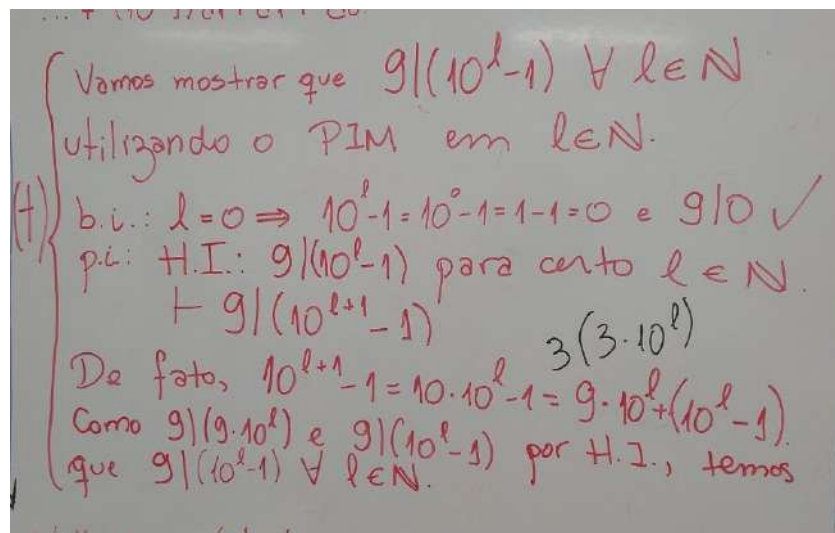 Vamos mostrar que 9|(10^l-1) ∀ l∈N
utilizando o PIM em l∈N.
(†) b.i.: l=0 ⇒ 10^l-1=10^0-1=1-1=0 e 9|0 ✓
p.i: H.I.: 9|(10^l-1) para certo l∈N.
⊢ 9|(10^{l+1}-1)
3(3·10^l)
De fato, 10^{l+1}-1=10·10^l-1=9·10^l+(10^l-1).
Como 9|(9·10^l) e 9|(10^l-1) por H.I., temos
que 9|(10^l-1) ∀ l∈N.